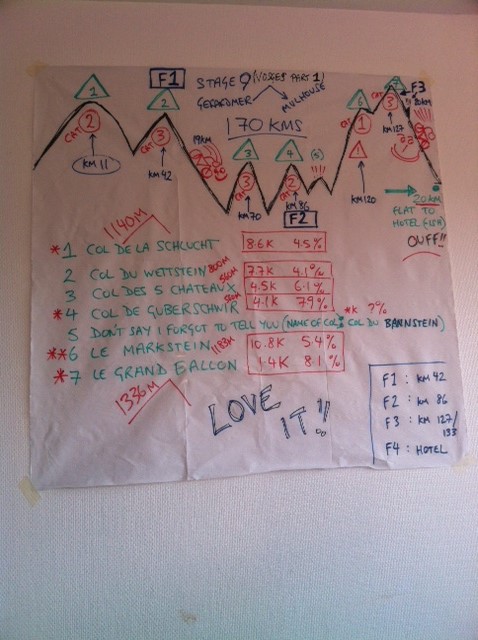 F1
STAGE 9 (VOSGES PART 1)
GERARDMER → MULHOUSE
170 KMS
F3
1
2
6
7
CAT 2
CAT 3
CAT 1
CAT 3
KM 11
KM 42
19KM
KM127
20KM
3
4
(5)
!!!!
CAT 3
CAT 2
KM 70
KM 86
F2
KM120
20KM
FLAT TO
HOTEL (ISH)
OUFF!!
1140M
*1 COL DE LA SCHLUCHT 8.6K 4.5%
2 COL DU WETTSTEIN 800M 7.7K 4.1%
3 COL DES 5 CHATEAUX 560M 4.5K 6.1%
*4 COL DE GUBERSCHWIR 560M 4.1K 7.9%
*K ?%
5 DON'T SAY I FORGOT TO TELL YOU (NAME OF COL: COL DU BANNSTEIN)
**6 LE MARKSTEIN 1183M 10.8K 5.4%
*7 LE GRAND BALLON 1.4K 8.1%
1336M
LOVE IT!!
F1 : KM 42
F2 : KM 86
F3 : KM 127/133
F4 : HOTEL